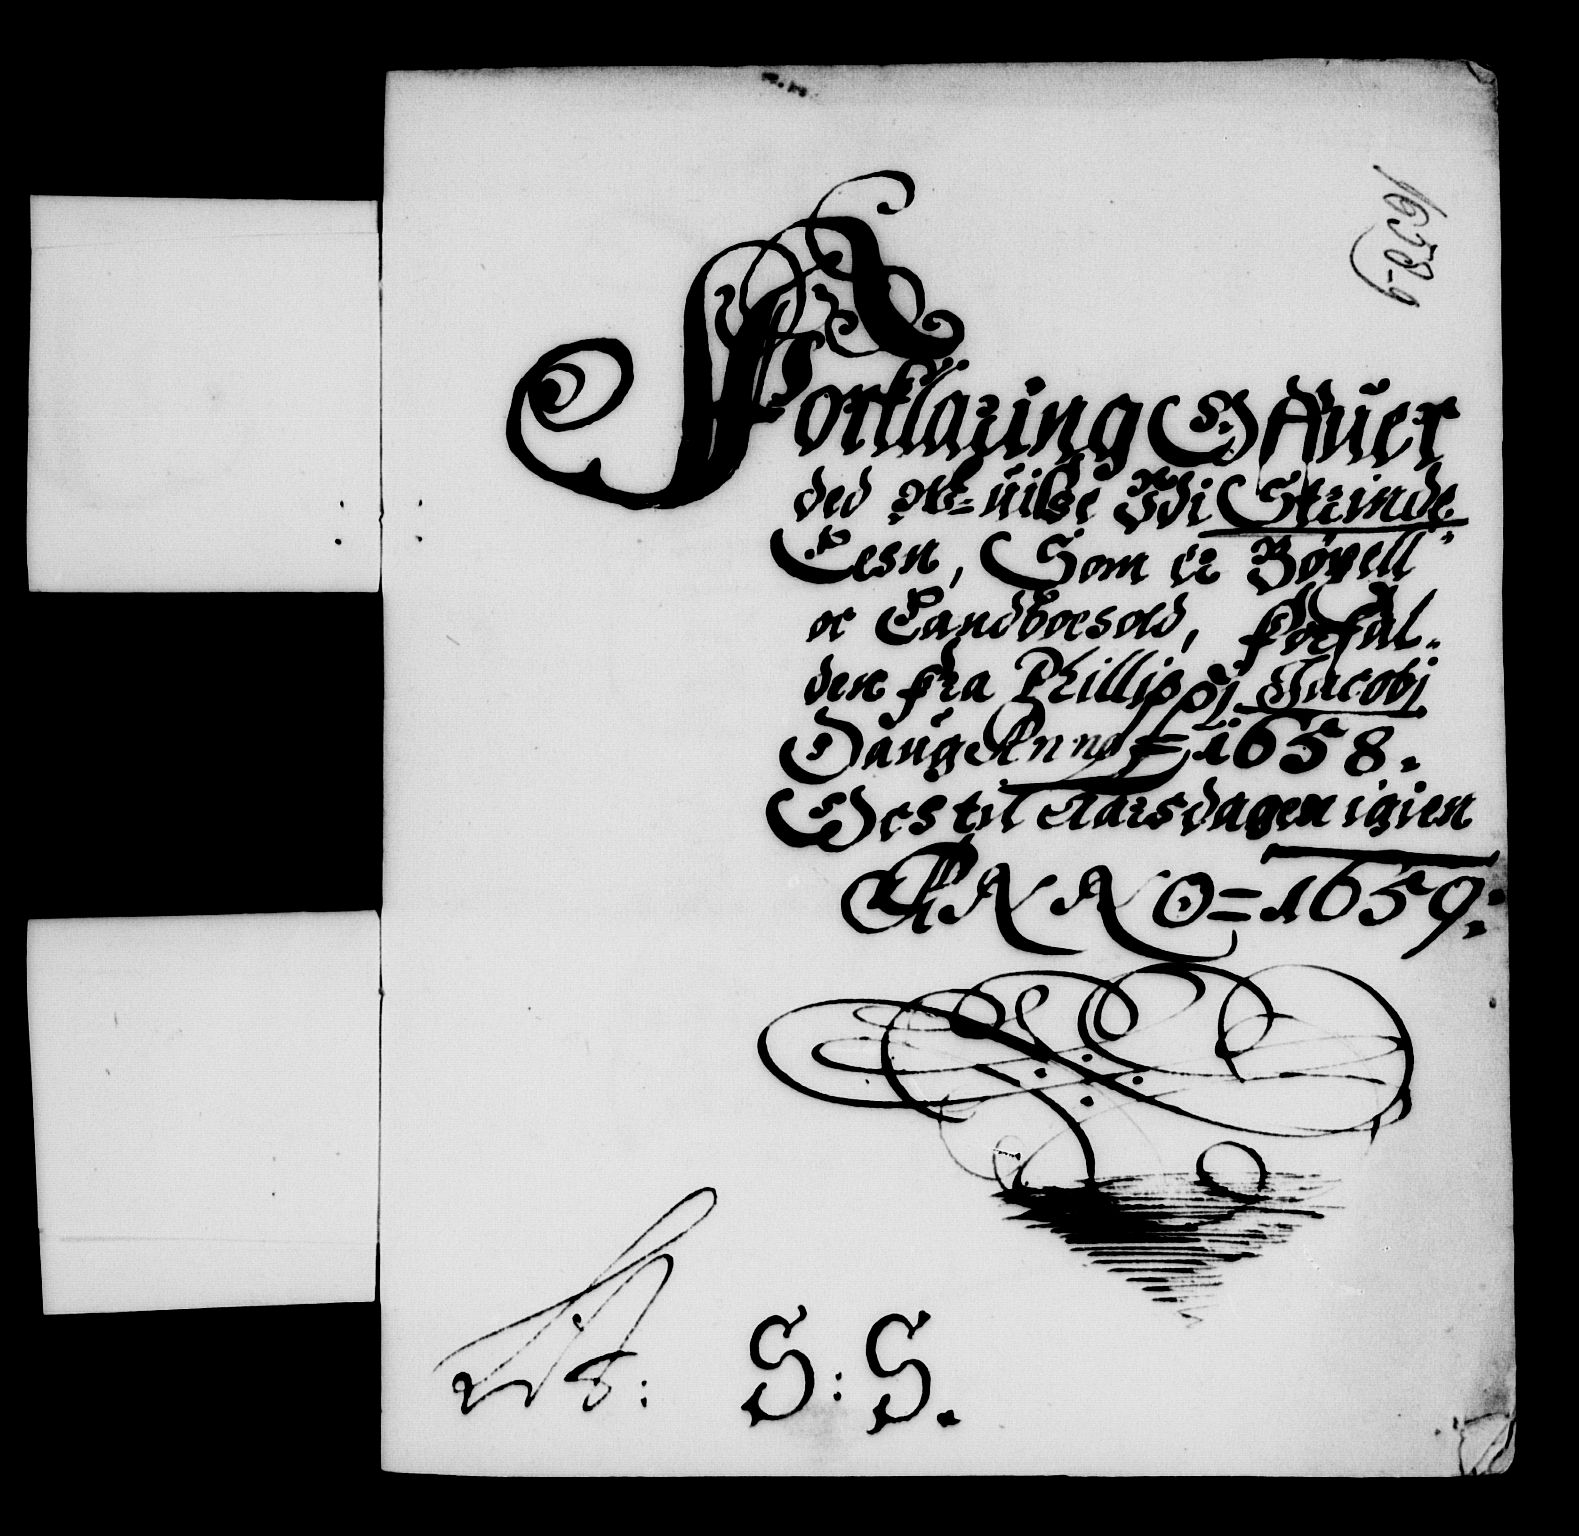 1658-9
Forklaring Offuer
ded W-uise Udi Strinde
Lesn, Som er Bøxell
oc Landboesold, forfal-
den fra Phillippj Jacobj
Daug Anno = 1658.
Oc til Aarsdagen igien
ANNO = 1659:
S: S.